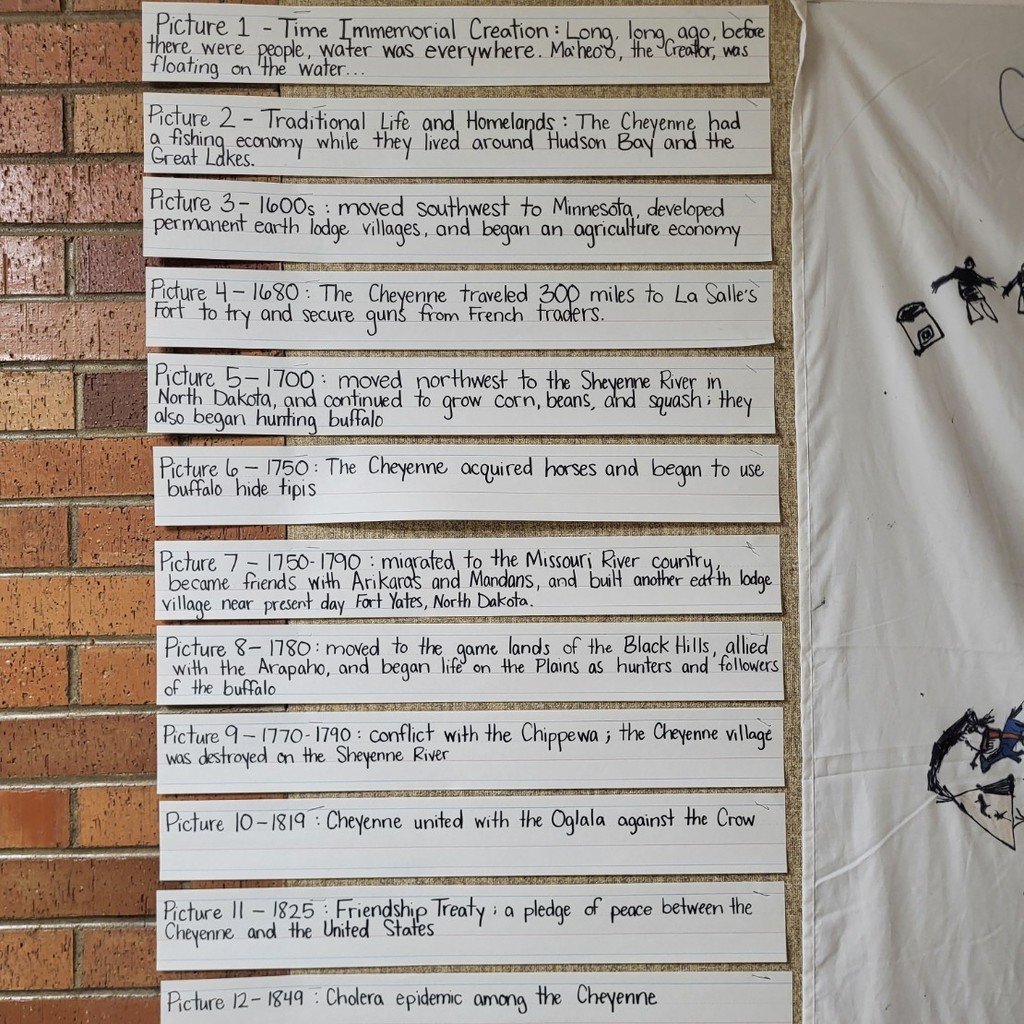 Picture 1 - Time Immemorial Creation: Long, long ago, before
there were people, water was everywhere. Ma'heo'o, the Creator, was
floating on the water...
Picture 2 - Traditional Life and Homelands: The Cheyenne had
a fishing economy while they lived around Hudson Bay and the
Great Lakes.
Picture 3 - 1600s: moved southwest to Minnesota, developed
permanent earth lodge villages, and began an agriculture economy
Picture 4 - 1680: The Cheyenne traveled 300 miles to La Salle's
Fort to try and secure guns from French traders.
Picture 5 - 1700: moved northwest to the Sheyenne River in
North Dakota, and continued to grow corn, beans, and squash; they
also began hunting buffalo
Picture 6 - 1750: The Cheyenne acquired horses and began to use
buffalo hide tipis
Picture 7 - 1750-1790: migrated to the Missouri River country,
became friends with Arikara's and Mandans, and built another earth lodge
village near present day Fort Yates, North Dakota.
Picture 8 - 1780: moved to the game lands of the Black Hills, allied
with the Arapaho, and began life on the Plains as hunters and followers
of the buffalo
Picture 9 - 1770-1790: conflict with the Chippewa; the Cheyenne village
was destroyed on the Sheyenne River
Picture 10 - 1819: Cheyenne united with the Oglala against the Crow
Picture 11 - 1825: Friendship Treaty; a pledge of peace between the
Cheyenne and the United States
Picture 12 - 1849: Cholera epidemic among the Cheyenne